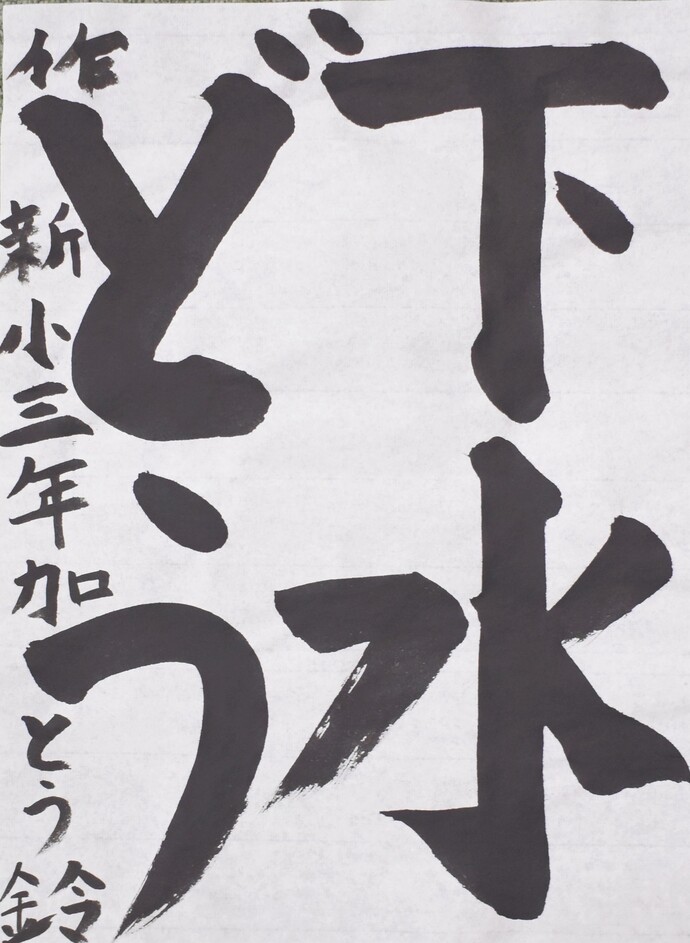 下水
どう
作新小三年加とう鈴